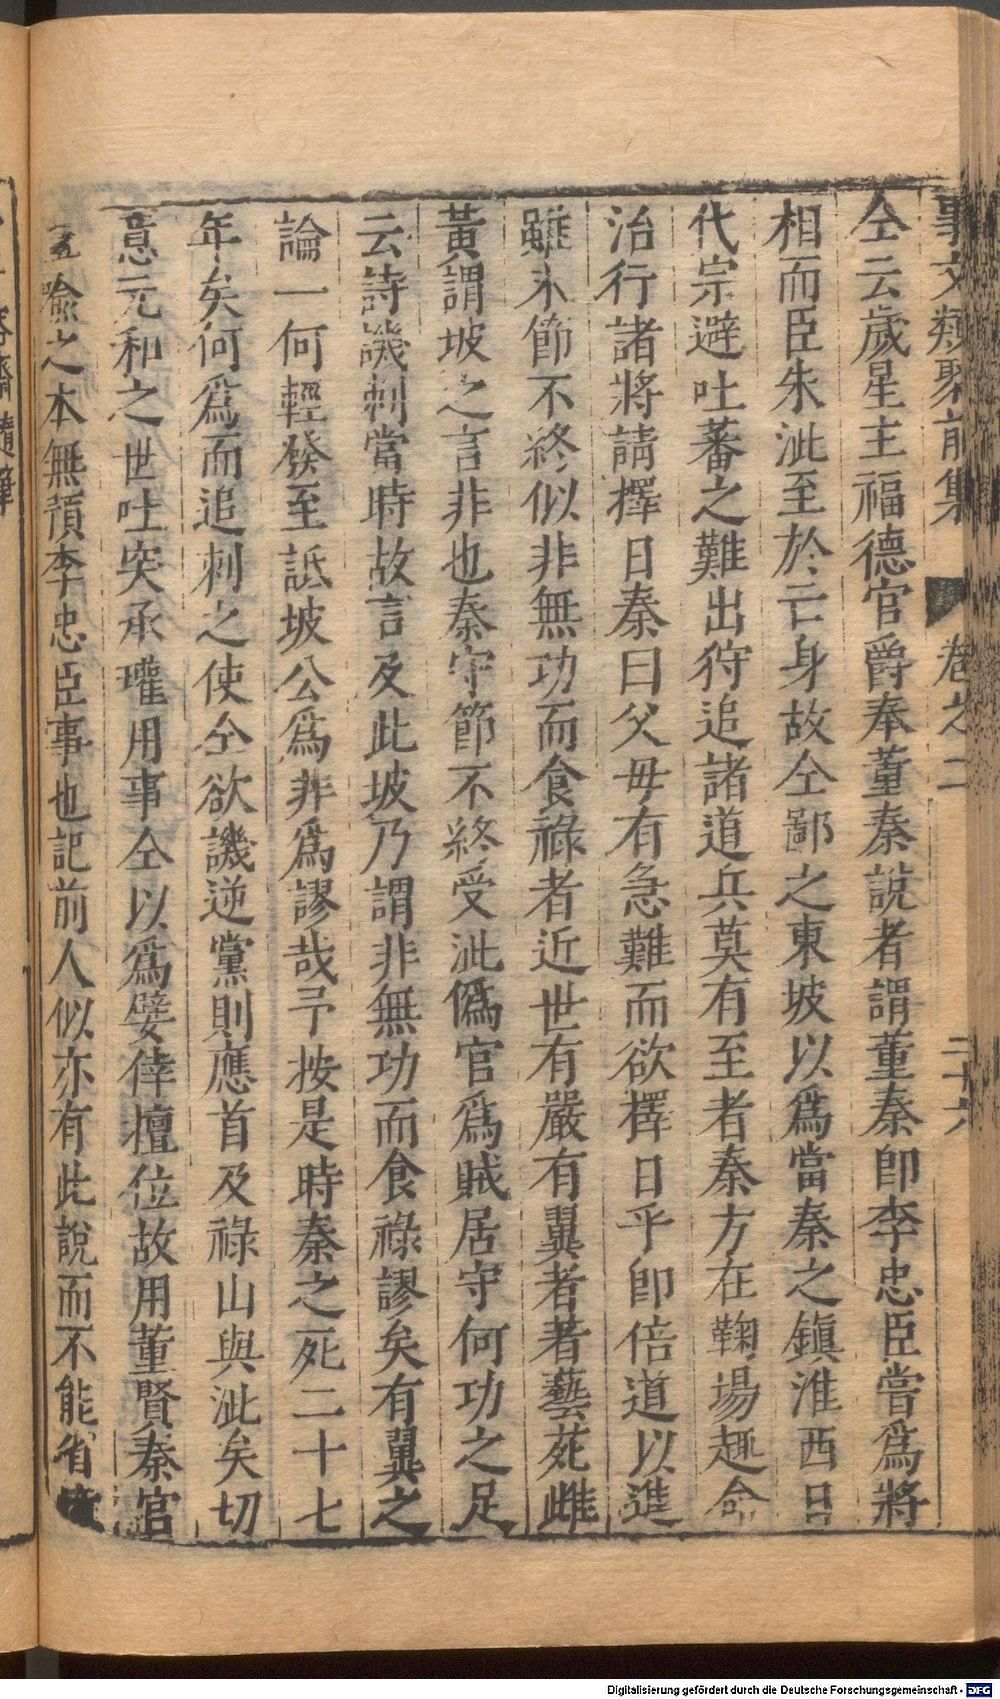 事文類聚前集 卷之二 二十六
仝云歲星主福德官爵奉董秦說者謂董秦卽李忠臣嘗爲將
相而臣朱泚至於亡身故仝鄙之東坡以爲當秦之鎮淮西日
代宗避吐蕃之難出狩追諸道兵莫有至者秦方在鞠場趣命
治行諸將請擇日秦曰父母有急難而欲擇日乎卽倍道以進
雖末節不終似非無功而食祿者近世有嚴有翼者著藝苑雌
黃謂坡之言非也秦守節不終受泚僞官爲賊居守何功之足
云詩譏刺當時故言及此坡乃謂非無功而食祿謬矣有翼之
論一何輕發至詆坡公爲非爲謬哉予按是時秦之死二十七
年矣何爲而追刺之使仝欲譏逆黨則應首及祿山與泚矣切
意元和之世吐突承璀用事仝以爲嬖倖擅位故用董賢秦官
喩之本無預李忠臣事也記前人似亦有此說而不能省
容齋隨筆
Digitalisierung gefördert durch die Deutsche Forschungsgemeinschaft - DFG